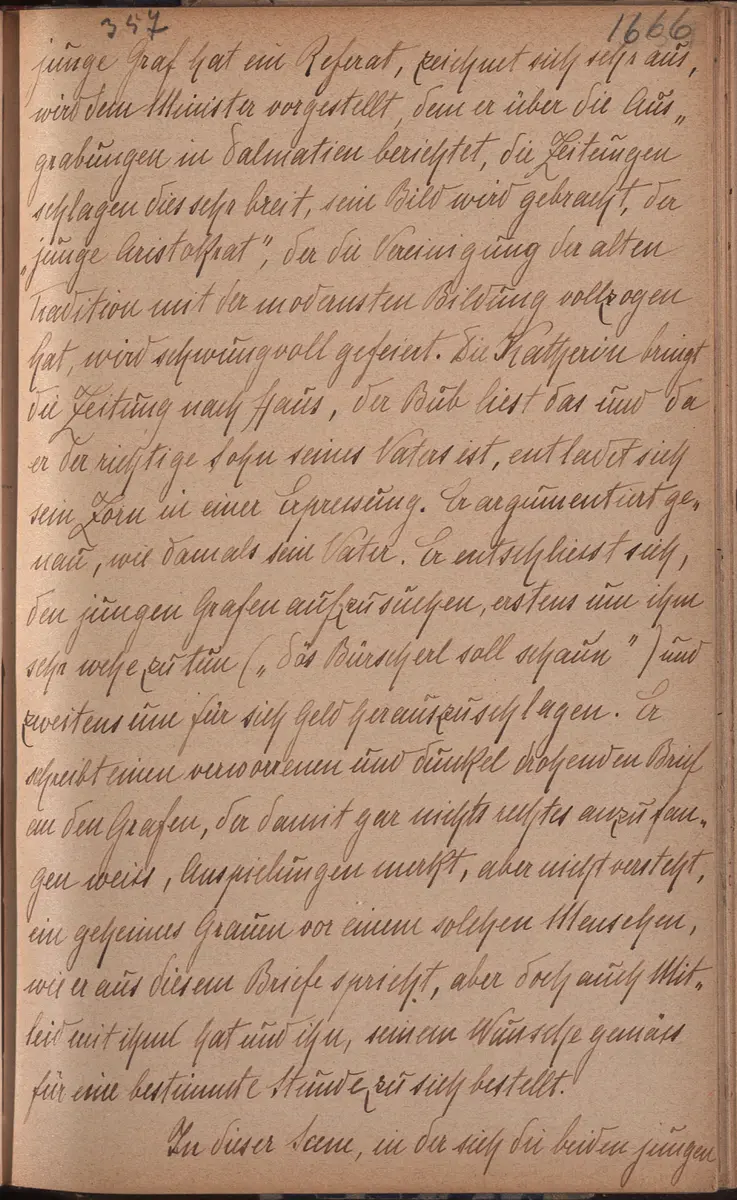 357 1666
junge Graf hat ein Referat, zeichnet sich sehr aus,
wird dem Minister vorgestellt, dem er über die Aus„
grabungen in Dalmatien berichtet, die Zeitungen
schlagen dies sehr breit, sein Bild wird gebracht, der
„junge Aristokrat“, der die Vereinigung der alten
Tradition mit der modernsten Bildung vollzogen
hat, wird schwungvoll gefeiert. Die Katherin bringt
die Zeitung nach Haus, der Bub liest das und da
er der richtige Sohn seines Vaters ist, entladet sich
sein Zorn in einer Erpressung. Er argumentiert ge„
nau, wie damals sein Vater. Er entschliesst sich,
den jungen Grafen aufzusuchen, erstens um ihm
sehr wehe zu tun („Dös Bürscherl soll schaun“) und
zweitens um für sich Geld herauszuschlagen. Er
schreibt einen verworrenen und dunkel drohenden Brief
an den Grafen, der damit gar nichts rechtes anzufan„
gen weiss, Anspielungen merkt, aber nicht versteht,
ein geheimes Grauen vor einem solchen Menschen,
wie er aus diesem Briefe spricht, aber doch auch Mit„
leid mit ihm hat und ihn, seinem Wunsche gemäss
für eine bestimmte Stunde zu sich bestellt.
In dieser Scene, in der sich die beiden jungen